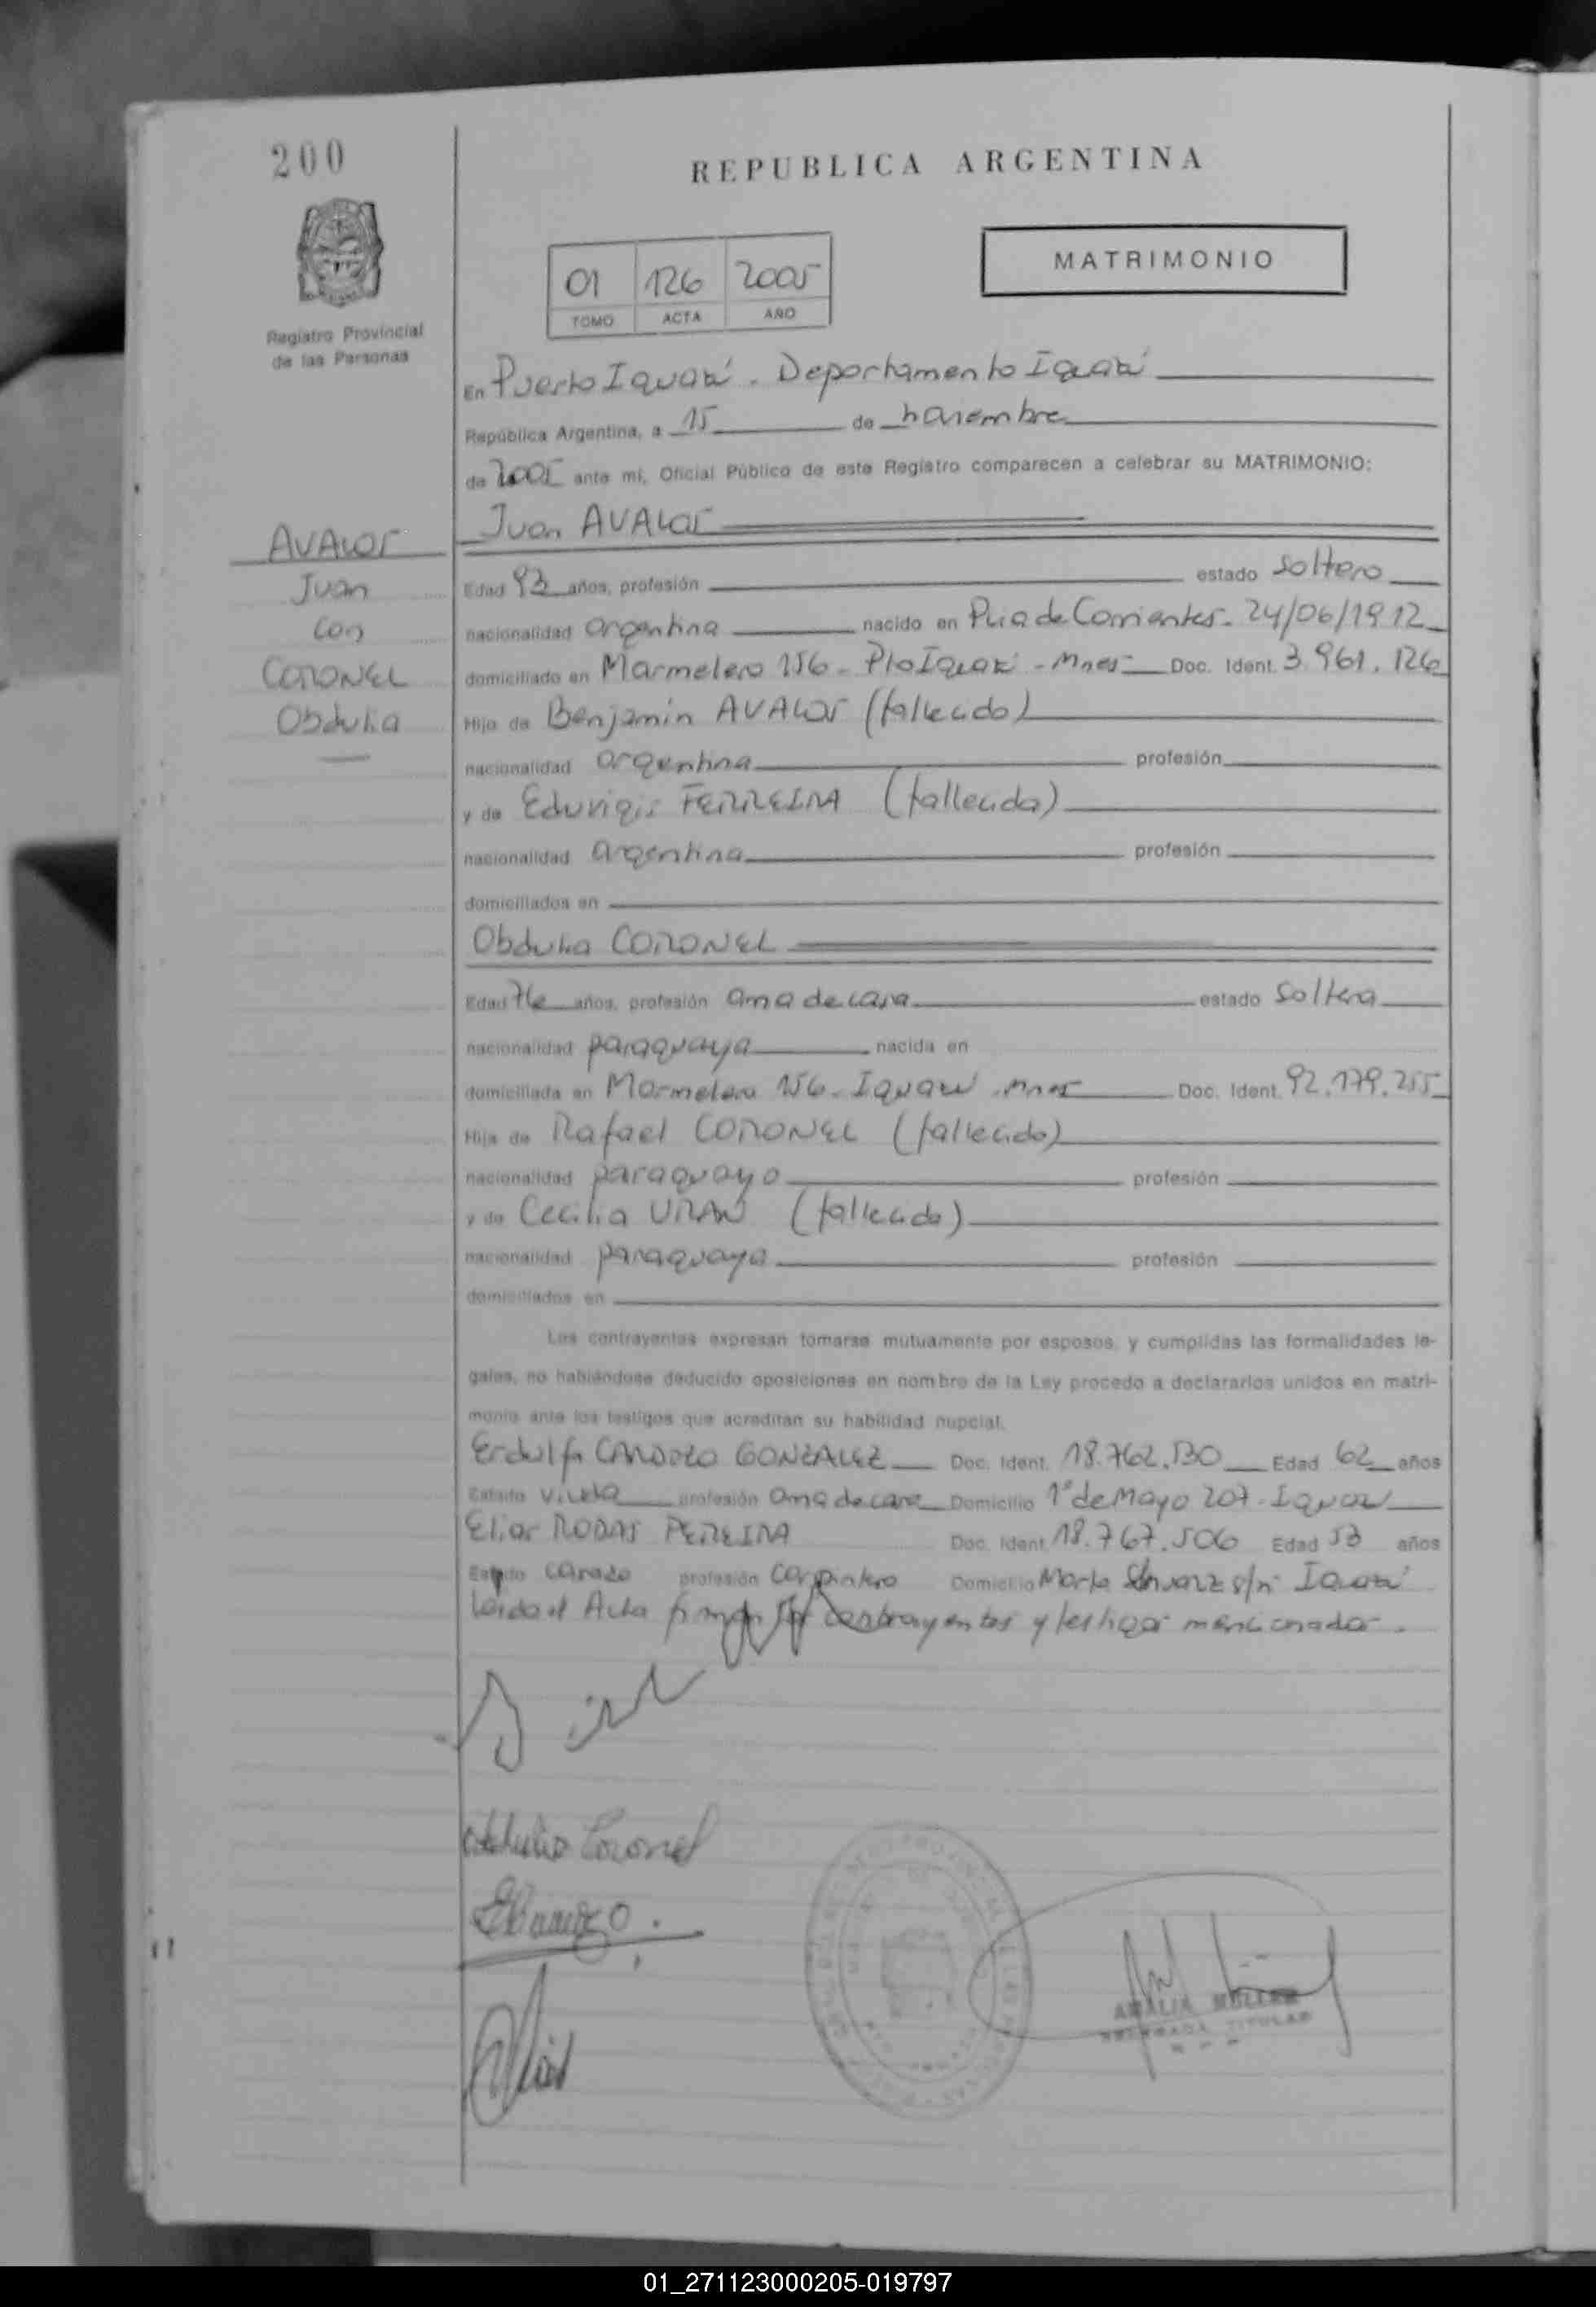 200
REPUBLICA ARGENTINA
MATRIMONIO
01 126 2005
TOMO ACTA AÑO
Registro Provincial
de las Personas
En Puerto Iguazú. Departamento Iguazú
República Argentina, a 15 de noviembre
de 2005 ante mí, Oficial Público de este Registro comparecen a celebrar su MATRIMONIO:
AVALOS
Juan
con
CORONEL
Obdulia
Juan AVALOS
Edad 93 años, profesión estado soltero
nacionalidad argentina nacido en Pcia de Corrientes. 24/06/1912
domiciliado en Marmelero 156 - Pto Iguazú - Mnes Doc. Ident. 3.961.126
Hijo de Benjamín AVALOS (fallecido)
nacionalidad argentina profesión
y de Eduvigis FERREIRA (fallecida)
nacionalidad argentina profesión
domiciliados en
Obdulia CORONEL
Edad 76 años, profesión ama de casa estado soltera
nacionalidad paraguaya nacida en
domiciliada en Marmelero 156 - Iguazú - Mnes Doc. Ident. 92.179.255
Hija de Rafael CORONEL (fallecido)
nacionalidad paraguayo profesión
y de Cecilia (fallecida)
nacionalidad paraguaya profesión
domiciliados en
Los contrayentes expresan tomarse mutuamente por esposos, y cumplidas las formalidades le-
gales, no habiéndose deducido oposiciones en nombre de la Ley procedo a declararlos unidos en matri-
monio ante los testigos que acreditan su habilidad nupcial.
Erdulfa CARDOZO GONZALEZ Doc. Ident. 18.762.130 Edad 62 años
Estado viuda profesión ama de casa Domicilio 1° de Mayo 207 - Iguazú
Elias RODAS PEREIRA Doc. Ident. 18.767.506 Edad 53 años
Estado casado profesión carpintero Domicilio Marta Schwarz s/n Iguazú
Leida el Acta firman los contrayentes y testigos mencionados.
Obdulia Coronel
AMALIA MULLER
DELEGADA TITULAR
01_271123000205-019797